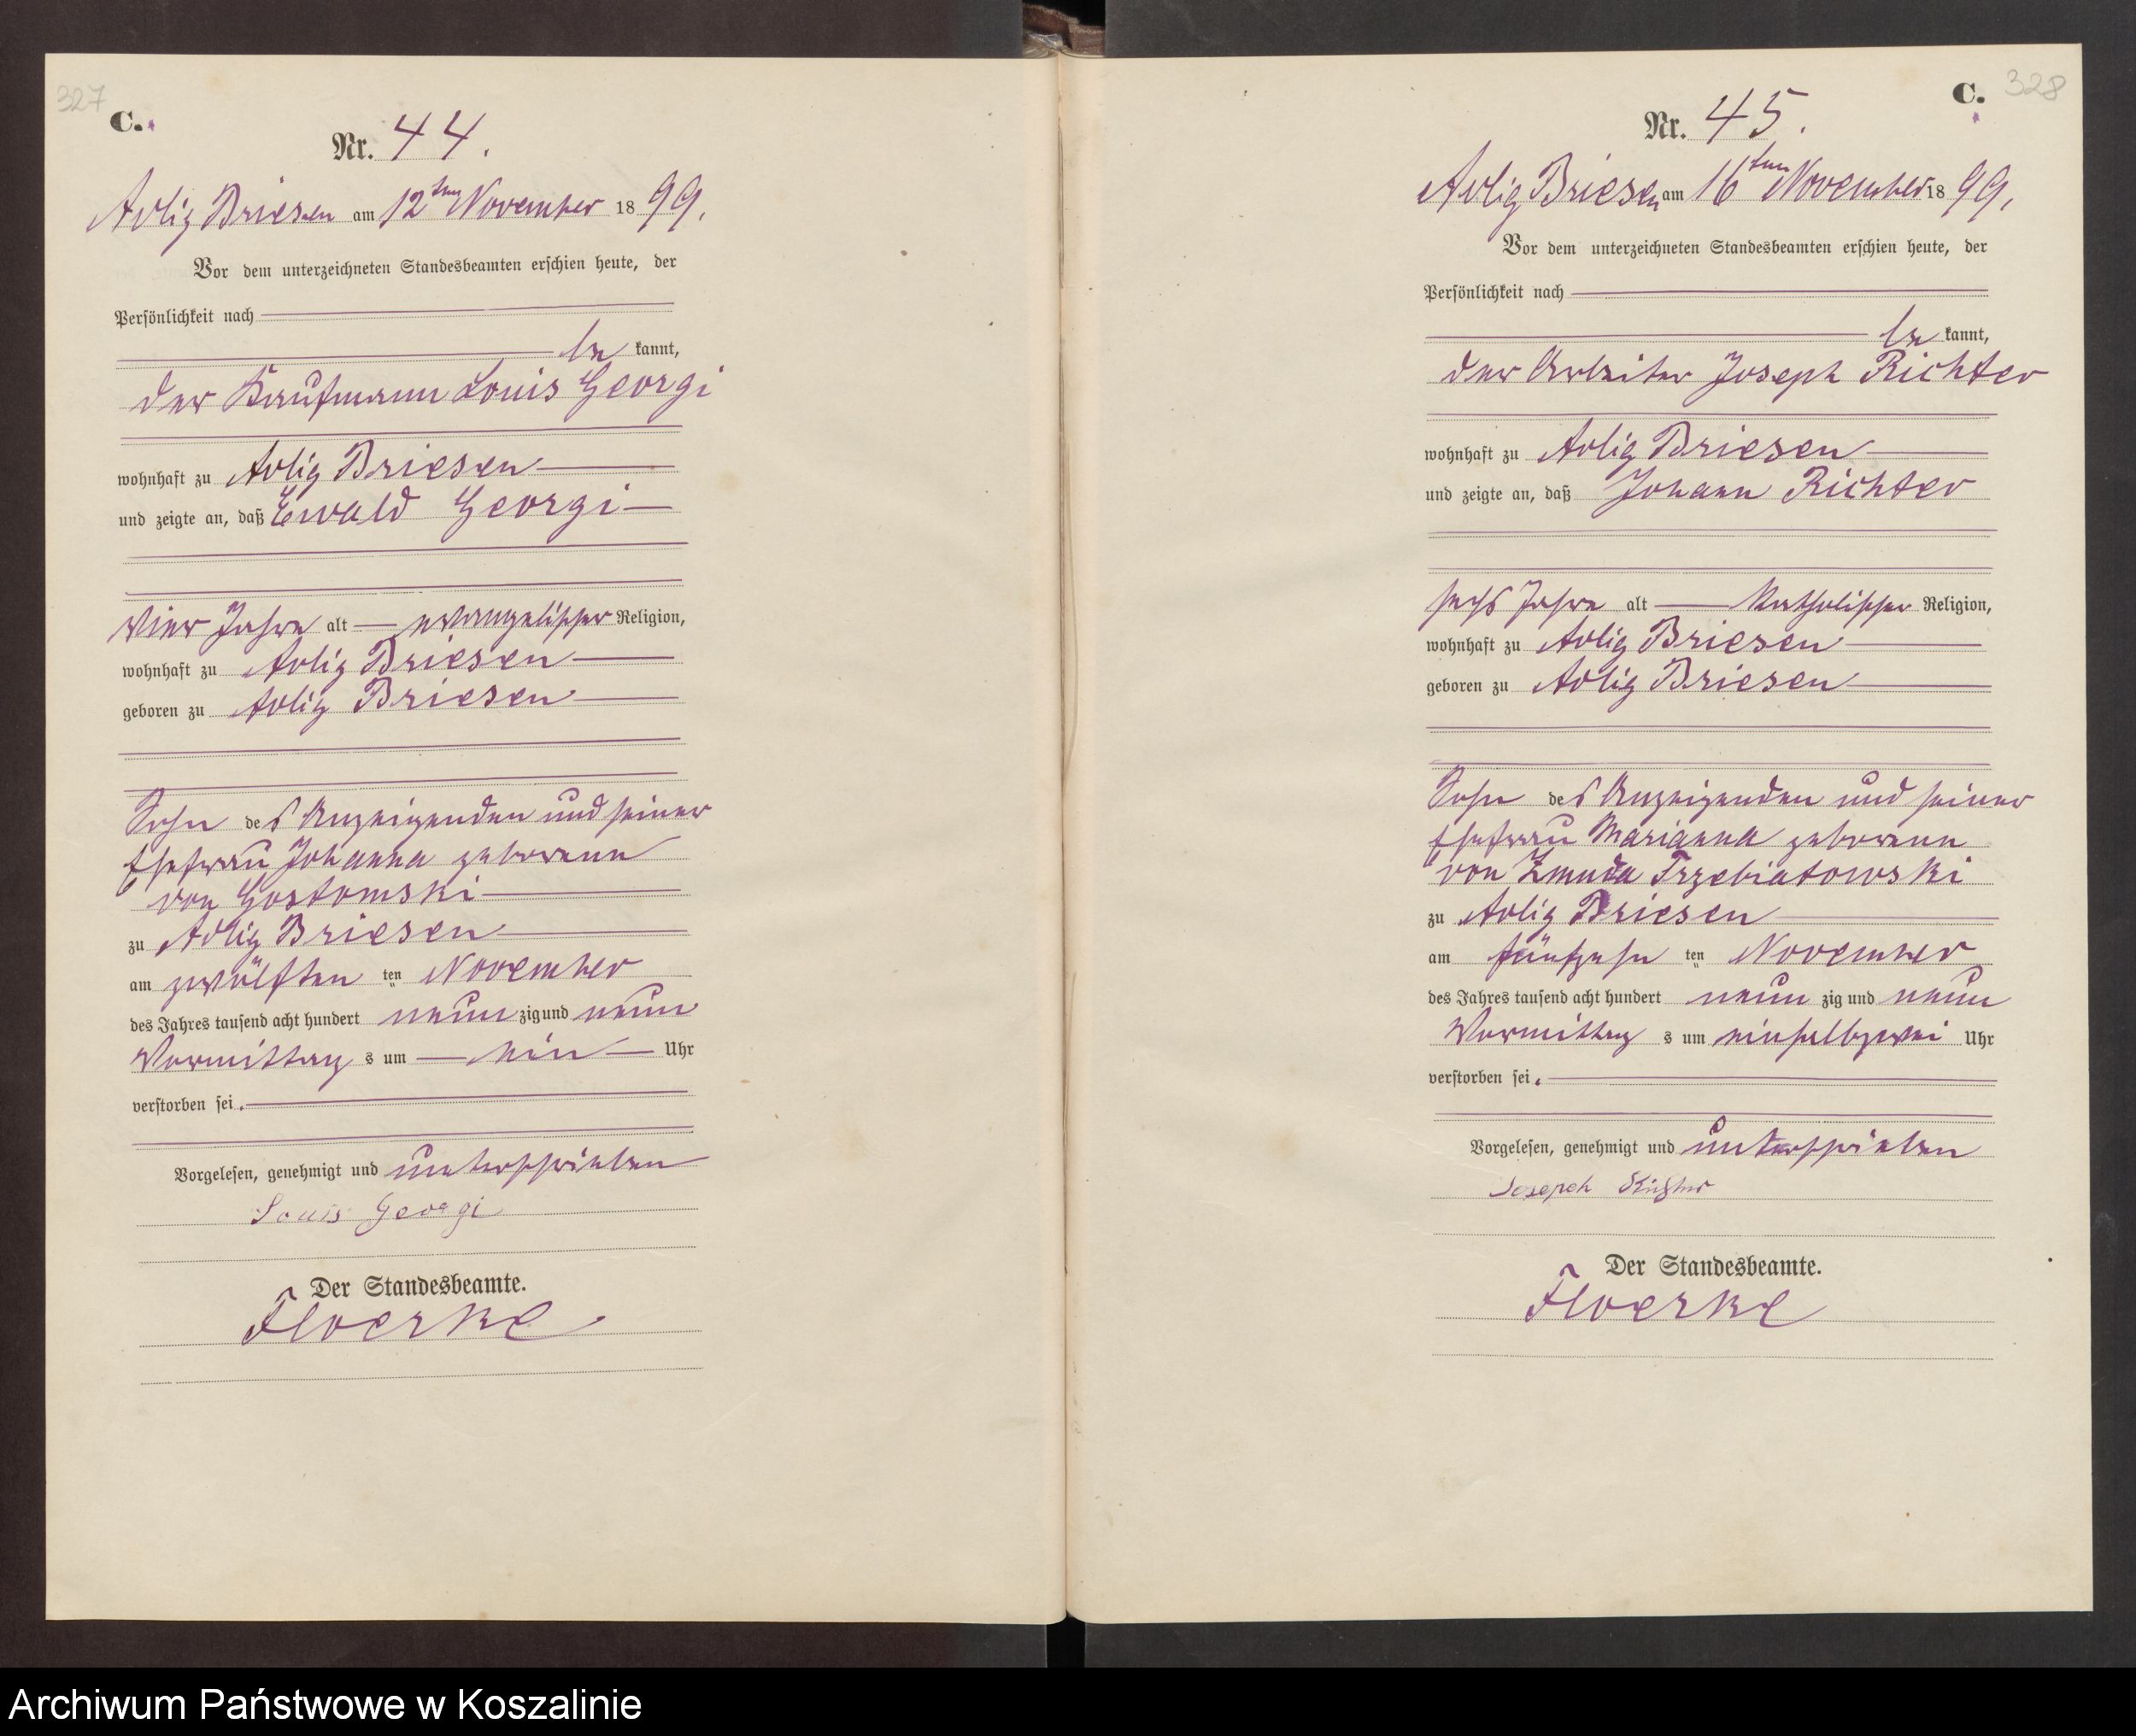 327
C.
Nr. 44.
Adlig Briesen am 12ten November 1899.
Vor dem unterzeichneten Standesbeamten erschien heute, der
Persönlichkeit nach
be kannt,
der Kaufmann Louis Georgi
wohnhaft zu Adlig Briesen
und zeigte an, daß Ewald Georgi
vier Jahre alt evangelischer Religion,
wohnhaft zu Adlig Briesen
geboren zu Adlig Briesen
Sohn des Anzeigenden und seiner
Ehefrau Johanna geborenen
von Gostomski
zu Adlig Briesen
am zwölften ten November
des Jahres tausend acht hundert neunzig und neun
Vormittags um ein Uhr
verstorben sei.
Vorgelesen, genehmigt und unterschrieben
Louis Georgi
Der Standesbeamte.
Floerke
328
C.
Nr. 45.
Adlig Briesen am 16ten November 1899.
Vor dem unterzeichneten Standesbeamten erschien heute, der
Persönlichkeit nach
be kannt,
der Arbeiter Joseph Richter
wohnhaft zu Adlig Briesen
und zeigte an, daß Johann Richter
sechs Jahre alt katholischer Religion,
wohnhaft zu Adlig Briesen
geboren zu Adlig Briesen
Sohn des Anzeigenden und seiner
Ehefrau Marianna geborenen
von Zmuda Trzebiatowski
zu Adlig Briesen
am fünfzehn ten November
des Jahres tausend acht hundert neunzig und neun
Vormittags um einhalbzwei Uhr
verstorben sei.
Vorgelesen, genehmigt und unterschrieben
Joseph Richter
Der Standesbeamte.
Floerke
Archiwum Państwowe w Koszalinie